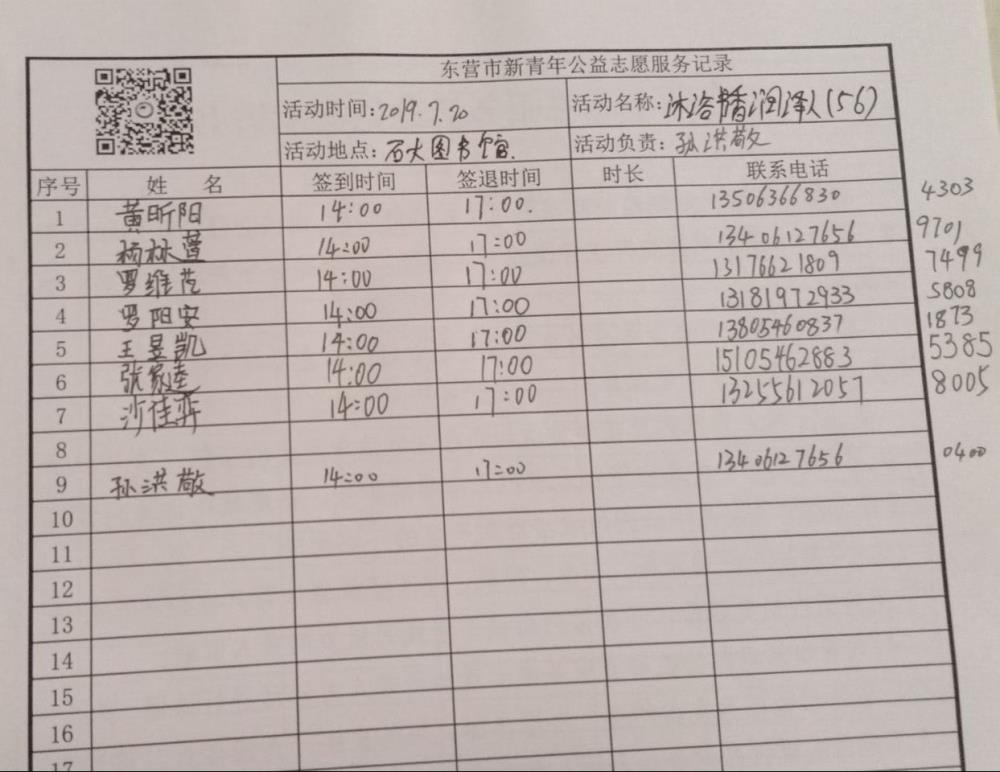 东营市新青年公益志愿服务记录
活动时间:2019.7.20 活动名称:沐浴书香润泽人(56)
活动地点:石大图书馆. 活动负责:孙洪敬
序号 姓 名 签到时间 签退时间 时长 联系电话
1 黄昕阳 14:00 17:00. 13506366830 4303
2 杨林萱 14:00 17:00 13406127656 9701
3 罗维范 14:00 17:00 13176621809 7499
4 罗阳安 14:00 17:00 13181972933 5808
5 王昱凯 14:00 17:00 13805460837 1873
6 张家逵 14:00 17:00 15105462883 5385
7 沙佳弈 14:00 17:00 13255612057 8005
8
9 孙洪敬 14:00 17:00 13406127656 0400
10
11
12
13
14
15
16
17